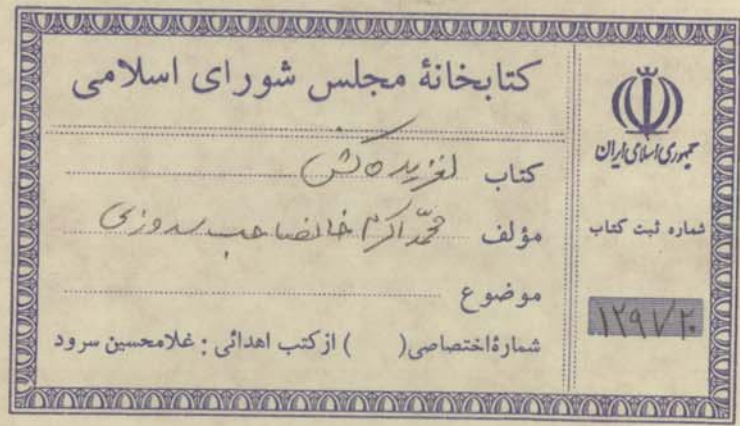 کتابخانهٔ مجلس شورای اسلامی
کتاب
مؤلف محمّد اکرم خانصاحب سدوزی
موضوع
شمارهٔ اختصاصی ( ) از کتب اهدائی : غلامحسین سرود
جمهوری اسلامی ایران
شماره ثبت کتاب
۱۲۹۱۷۲۰